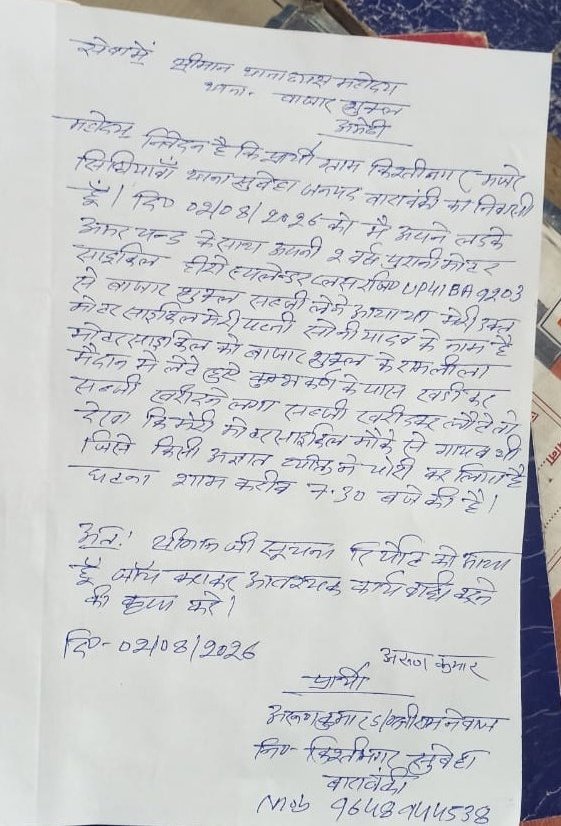 सेवामें श्रीमान थानाध्यक्ष महोदय
थाना- बाजार शुक्ल
अमेठी
महोदय निवेदन है कि प्रार्थी ग्राम किश्तीनगर मजरे
थाना सुबेहा जनपद बाराबंकी का निवासी
हूँ। दि० 02/08/2026 को मै अपने लडके
अमर चन्द के साथ अपनी 2 वर्ष पुरानी मोटर
साइकिल हीरो स्पलेन्डर प्लस रजि० UP41BA9203
से बाजार शुक्ल सब्जी लेने आया था मेरी उक्त
मोटर साइकिल मेरी पत्नी सोनी यादव के नाम है
मोटर साइकिल को बाजार शुक्ल के रामलीला
मैदान मे लेटे हुए कुम्भकर्ण के पास खडी कर
सब्जी खरीदने लगा सब्जी खरीदकर लौटे तो
देखा कि मेरी मोटरसाइकिल मौके से गायब थी
जिसे किसी अज्ञात व्यक्ति ने चोरी कर लिया है
घटना शाम करीब 7:30 बजे की है।
अतः श्रीमान जी सूचना रिपोर्ट को आया
हूँ जाँच कराकर आवश्यक कार्यवाही करने
की कृपा करे।
दि०- 02/08/2026
अरुण कुमार
प्रार्थी
अरुण कुमार S/O श्री राम नेवाज
नि०- किश्तीनगर सुबेहा
बाराबंकी
Mob 9648944538